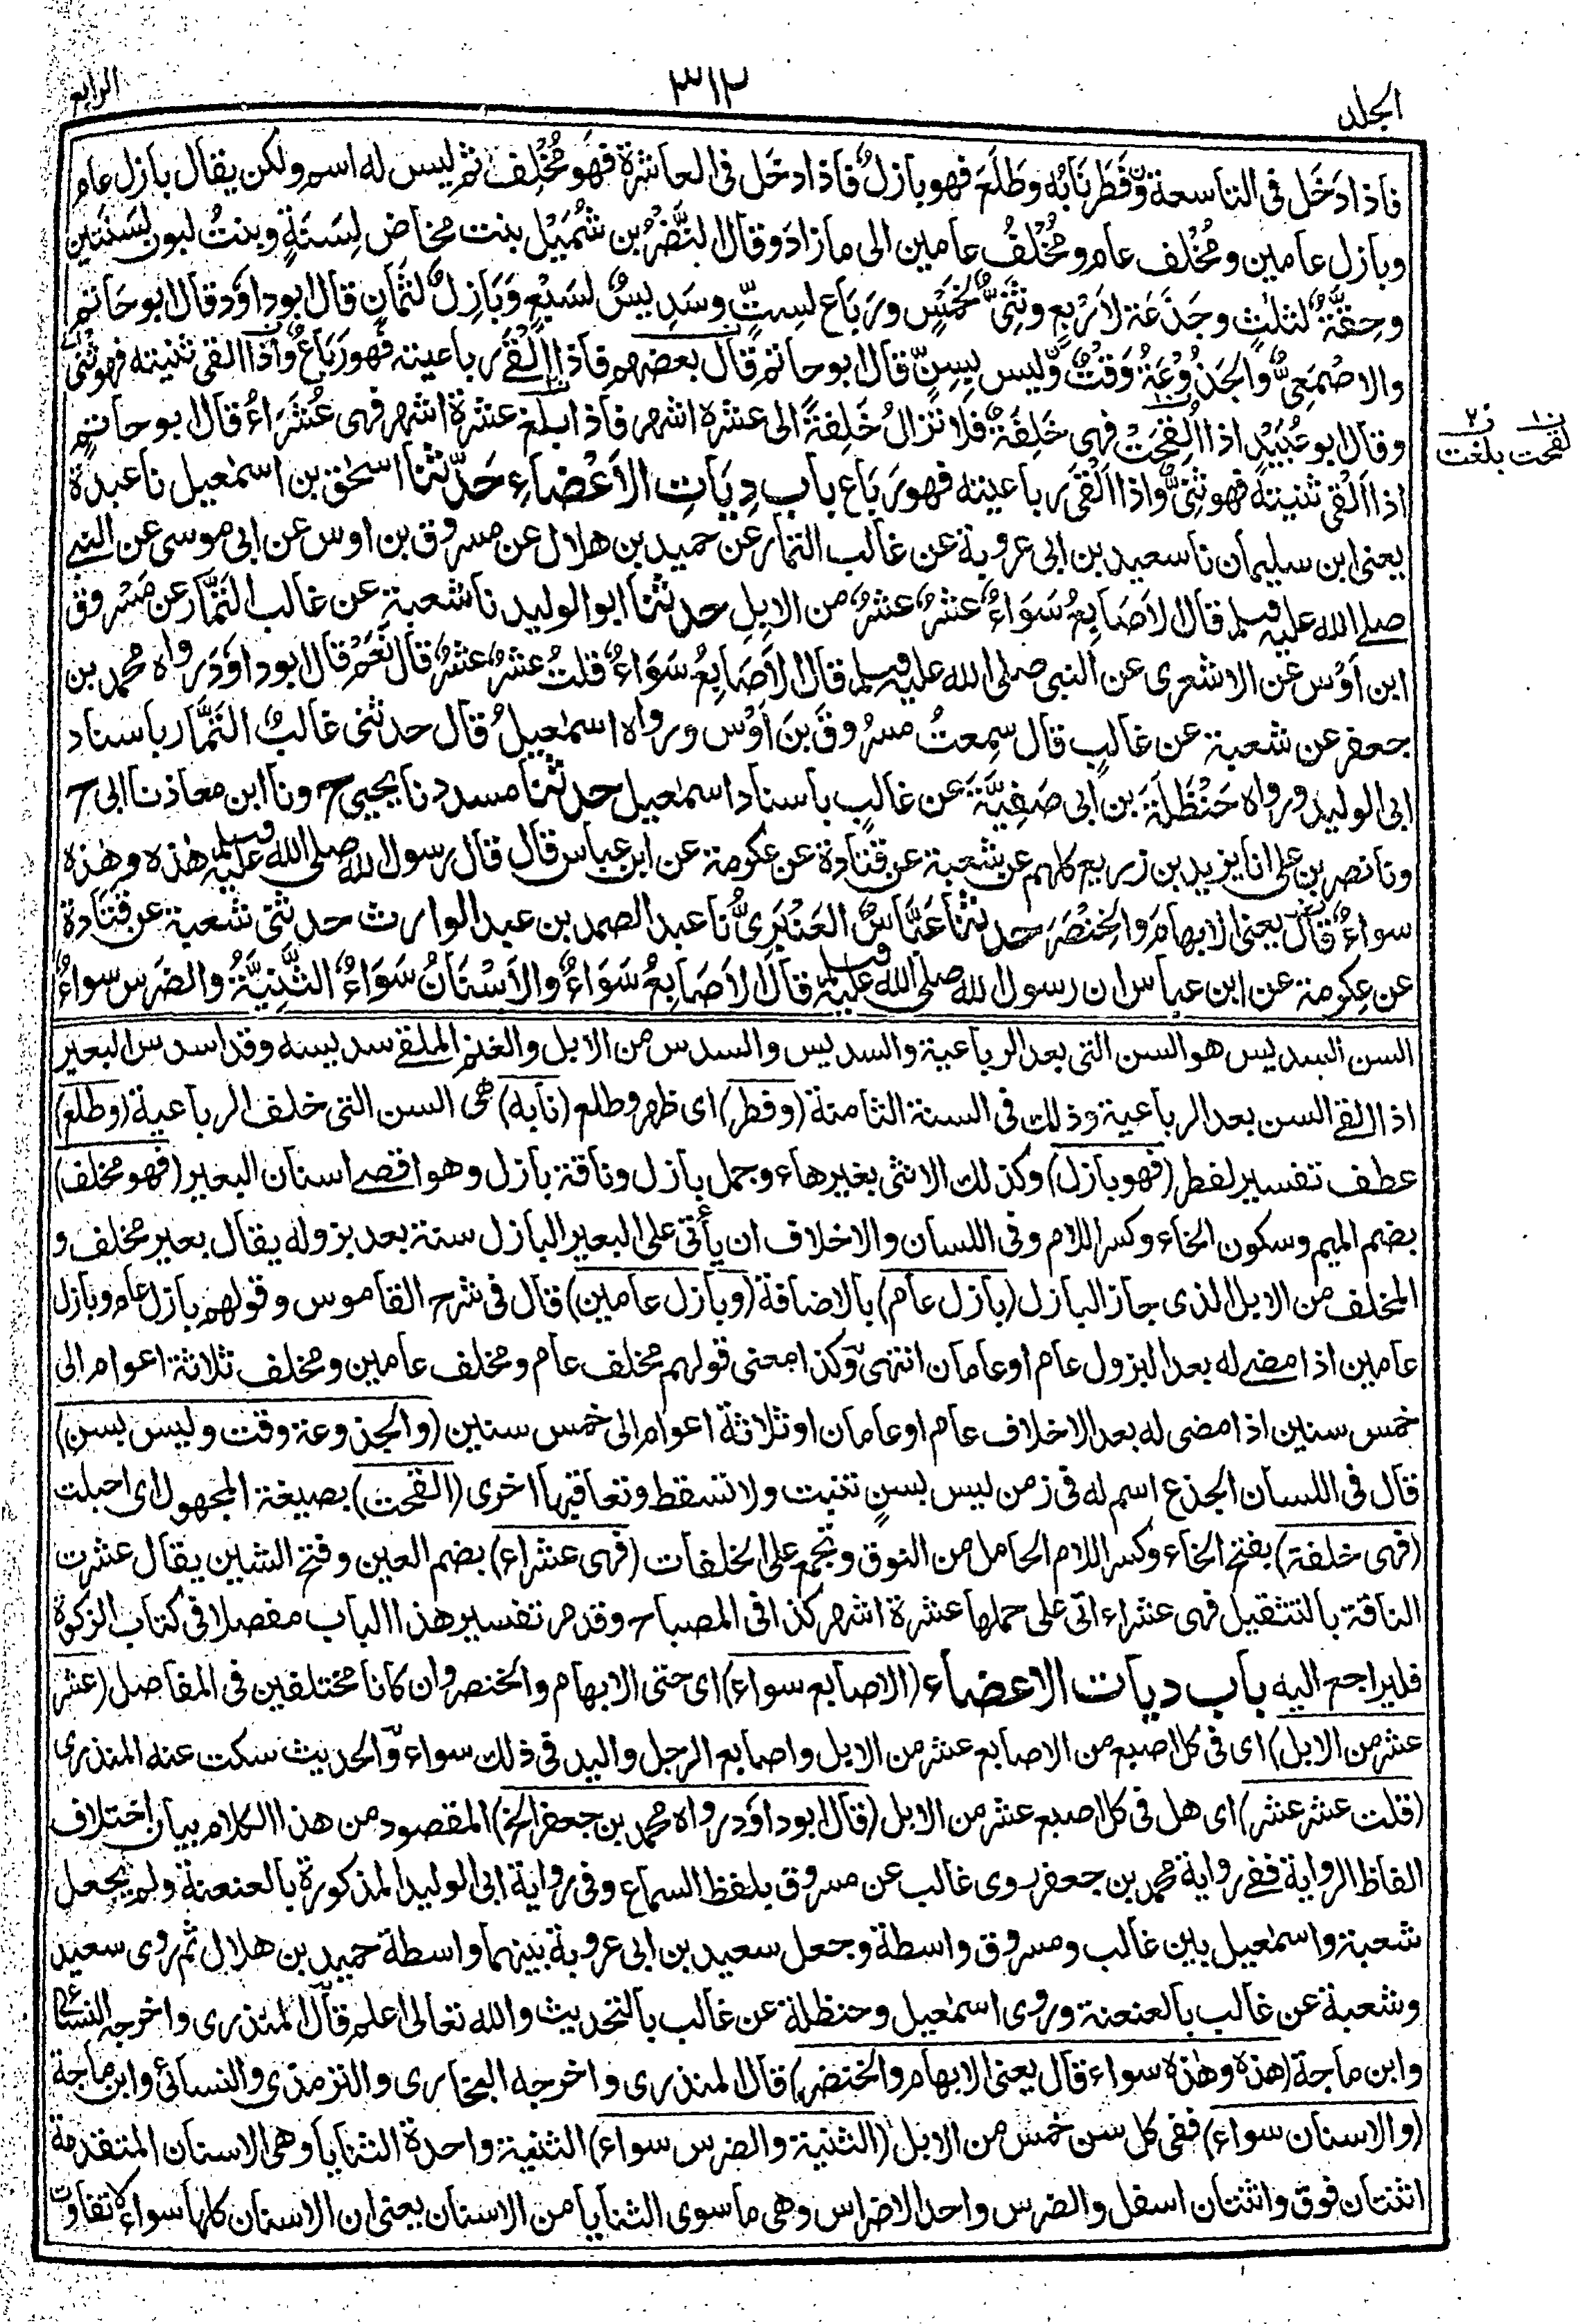 الجلد
٣١٢
الرابع
فاذا دَخَل في التاسعة وفَطَر نَابُه وطَلَعَ فهو بازلٌ فاذا دخَل في العاشرة فهَو مُخْلِف ثم ليس له اسم ولكن يقال بازل عام
وبازل عامين ومُخْلف عام ومُخْلفُ عامين الى مازاد وقال النَّضْرُ بن شُمَيْل بنت مخاض لِسَنَةٍ وبنتُ لبون لسَنَتَين
وحِقَّةٌ لثلٰثٍ وجَذَعَة لاَرْبعٍ وثَنِىٌّ لخمْسٍ ورَبَاع لسِتٍّ وسَدِيسٌ لسَبْعٍ وَبَازِلٌ لثَمَانٍ قال ابوداوٗد قال ابو حَاتم
والاصْمَعِىُّ والجَذُوْعَةُ وَقْتٌ وَّليس بِسِنٍّ قال ابوحاتم قال بعضهم فاذا اَلْقَى رباعيته فهو رَبَاعٌ واذا القى ثنيته فهو ثَنِىٌّ
وقال ابوعُبَيْدٍ اذا اُلْقِحَتْ فهى خَلِفَةٌ فلا تزالُ خَلِفَةً الى عشرة اشهر فاذا بلغ عشرة اشهر فهى عُشَرَاءُ قال ابو حاتم
اذا اَلْقى ثنيتَه فهو ثَنِىٌّ واذا اَلْقَى رباعيته فهو رَبَاع باب دِيَاتِ الاَعْضَاءِ حَدّثنا اسحٰق بن اسمٰعيل نا عبدة
يعنى ابن سليمان نا سعيد بن ابى عروبة عن غالب التمار عن حميد بن هلال عن مسروق بن اوس عن ابى موسى عن النبى
صلى الله عليه وسلم قال الاَصَابِعُ سَوَاءٌ عشرٌ عشرٌ من الابِلِ حدثنا ابو الوليد نا شعبة عن غالب التمَّار عن مَسْروق
ابن اَوْس عن الاشعرى عن النبى صلى الله عليه وسلم قال الاَصَابِعُ سَوَاءٌ قلتُ عشرٌ عشرٌ قال نَعَمْ قال ابوداوٗد رواه محمد بن
جعفر عن شعبة عن غالبٍ قال سمِعتُ مسرُوقَ بنَ اَوْس ورواه اسمٰعيلُ قال حدثنى غالبٌ التَمَّار باسناد
ابى الوليد ورواه حَنْظَلَةَ بن اَبى صَفِيَّةَ عن غالبٍ باسناد اسمٰعيل حدثنا مسدد نا يحيى ح ونا ابن معاذ نا ابى ح
ونا نصر بن على انا يزيد بن زريع كلهم عن شعبة عن قتادة عن عكرمة عن ابن عباس قال قال رسول الله صلى الله عليه وسلم هٰذه وهٰذه
سواءٌ قال يعنى الابهامَ والخِنْصَرَ حدثنا عَبَّاسٌ العَنْبَرِىُّ نا عبد الصمد بن عبد الوارث حدثنى شعبة عن قتادة
عن عِكرمة عن ابن عباس ان رسول الله صلى الله عليه وسلم قال الاَصَابِعُ سَوَاءٌ والاَسْنَانُ سَوَاءٌ الثَّنِيَّةُ والضرس سواءٌ
ن١ لقحت ن٢ بلغت
السن السديس هو السن التى بعد الرباعية والسديس والسدس من الابل والغنم الملقى سديسه وقد اسدس البعير
اذا القى السن بعد الرباعية وذلك فى السنة الثامنة (وفطر) اى ظهر وطلع (نابه) هى السن التى خلف الرباعية (وطلع)
عطف تفسير لفطر (فهو بازل) وكذلك الانثى بغير هاء وجمل بازل وناقة بازل وهو اقصى اسنان البعير (فهو مخلف)
بضم الميم وسكون الخاء وكسر اللام وفى اللسان والاخلاف ان يأتى على البعير البازل سنة بعد بزوله يقال بعير مخلف و
المخلف من الابل الذى جاز البازل (بازل عام) بالاضافة (وبازل عامين) قال فى شرح القاموس وقولهم بازل عام وبازل
عامين اذا مضى له بعد البزول عام او عامان انتهى وكذا معنى قولهم مخلف عام ومخلف عامين ومخلف ثلاثة اعوام الى
خمس سنين اذا مضى له بعد الاخلاف عام او عامان او ثلاثة اعوام الى خمس سنين (والجذوعة وقت وليس بسن)
قال فى اللسان الجذع اسم له فى زمن ليس بسنٍ تنبت ولا تسقط وتعاقبها اخرى (القحت) بصيغة المجهول اى احبلت
(فهى خلفة) بفتح الخاء وكسر اللام الحامل من النوق وتجمع على الخلفات (فهى عشراء) بضم العين وفتح الشين يقال عشرت
الناقة بالتثقيل فهى عشراء اتى على حملها عشرة اشهر كذا فى المصباح وقد مر تفسير هذا الباب مفصلا فى كتاب الزكوة
فليراجع اليه باب ديات الاعضاء (الاصابع سواء) اى حتى الابهام والخنصر وان كانا مختلفين فى المفاصل (عشر
عشر من الابل) اى فى كل اصبع من الاصابع عشر من الابل واصابع الرجل واليد فى ذلك سواء والحديث سكت عنه المنذرى
(قلت عشر عشر) اى هل فى كل اصبع عشر من الابل (قال ابوداوٗد رواه محمد بن جعفر الخ) المقصود من هذا الكلام بيان اختلاف
الفاظ الرواية ففى رواية محمد بن جعفر روى غالب عن مسروق بلفظ السماع وفى رواية ابى الوليد المذكورة بالعنعنة ولم يجعل
شعبة واسمٰعيل بين غالب ومسروق واسطة وجعل سعيد بن ابى عروبة بينهما واسطة حميد بن هلال ثم روى سعيد
وشعبة عن غالب بالعنعنة وروى اسمٰعيل وحنظلة عن غالب بالتحديث والله تعالى اعلم قال المنذرى واخرجه النسائى
وابن ماجة (هذه وهٰذه سواء قال يعنى الابهام والخنصر) قال المنذرى واخرجه البخارى والترمذى والنسائى وابن ماجة
(والاسنان سواء) ففى كل سن خمس من الابل (الثنية والضرس سواء) الثنية واحدة الثنايا وهى الاسنان المتقدمة
اثنتان فوق واثنتان اسفل والضرس واحد الاضراس وهى ما سوى الثنايا من الاسنان يعنى ان الاسنان كلها سواء لا تفاوت